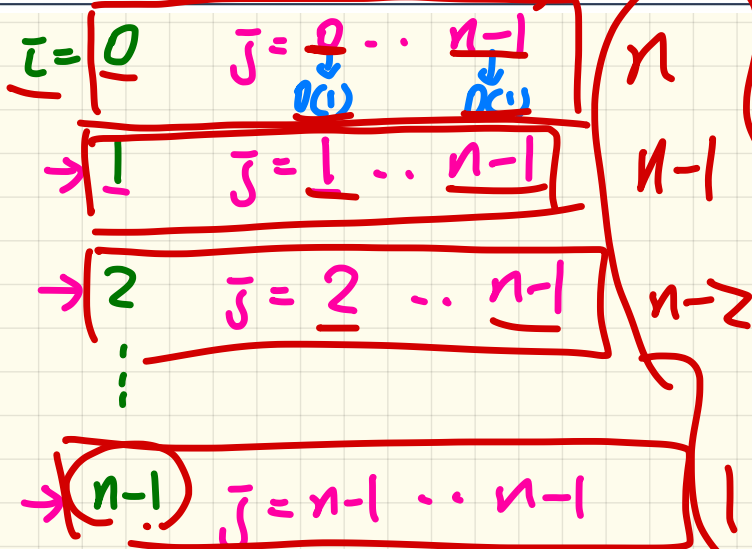 i = 0 j = 0 .. n-1 n
↓ ↓
O(1) O(1)
→ 1 j = 1 .. n-1 n-1
→ 2 j = 2 .. n-1 n-2
⋮
→ n-1 j = n-1 .. n-1 1